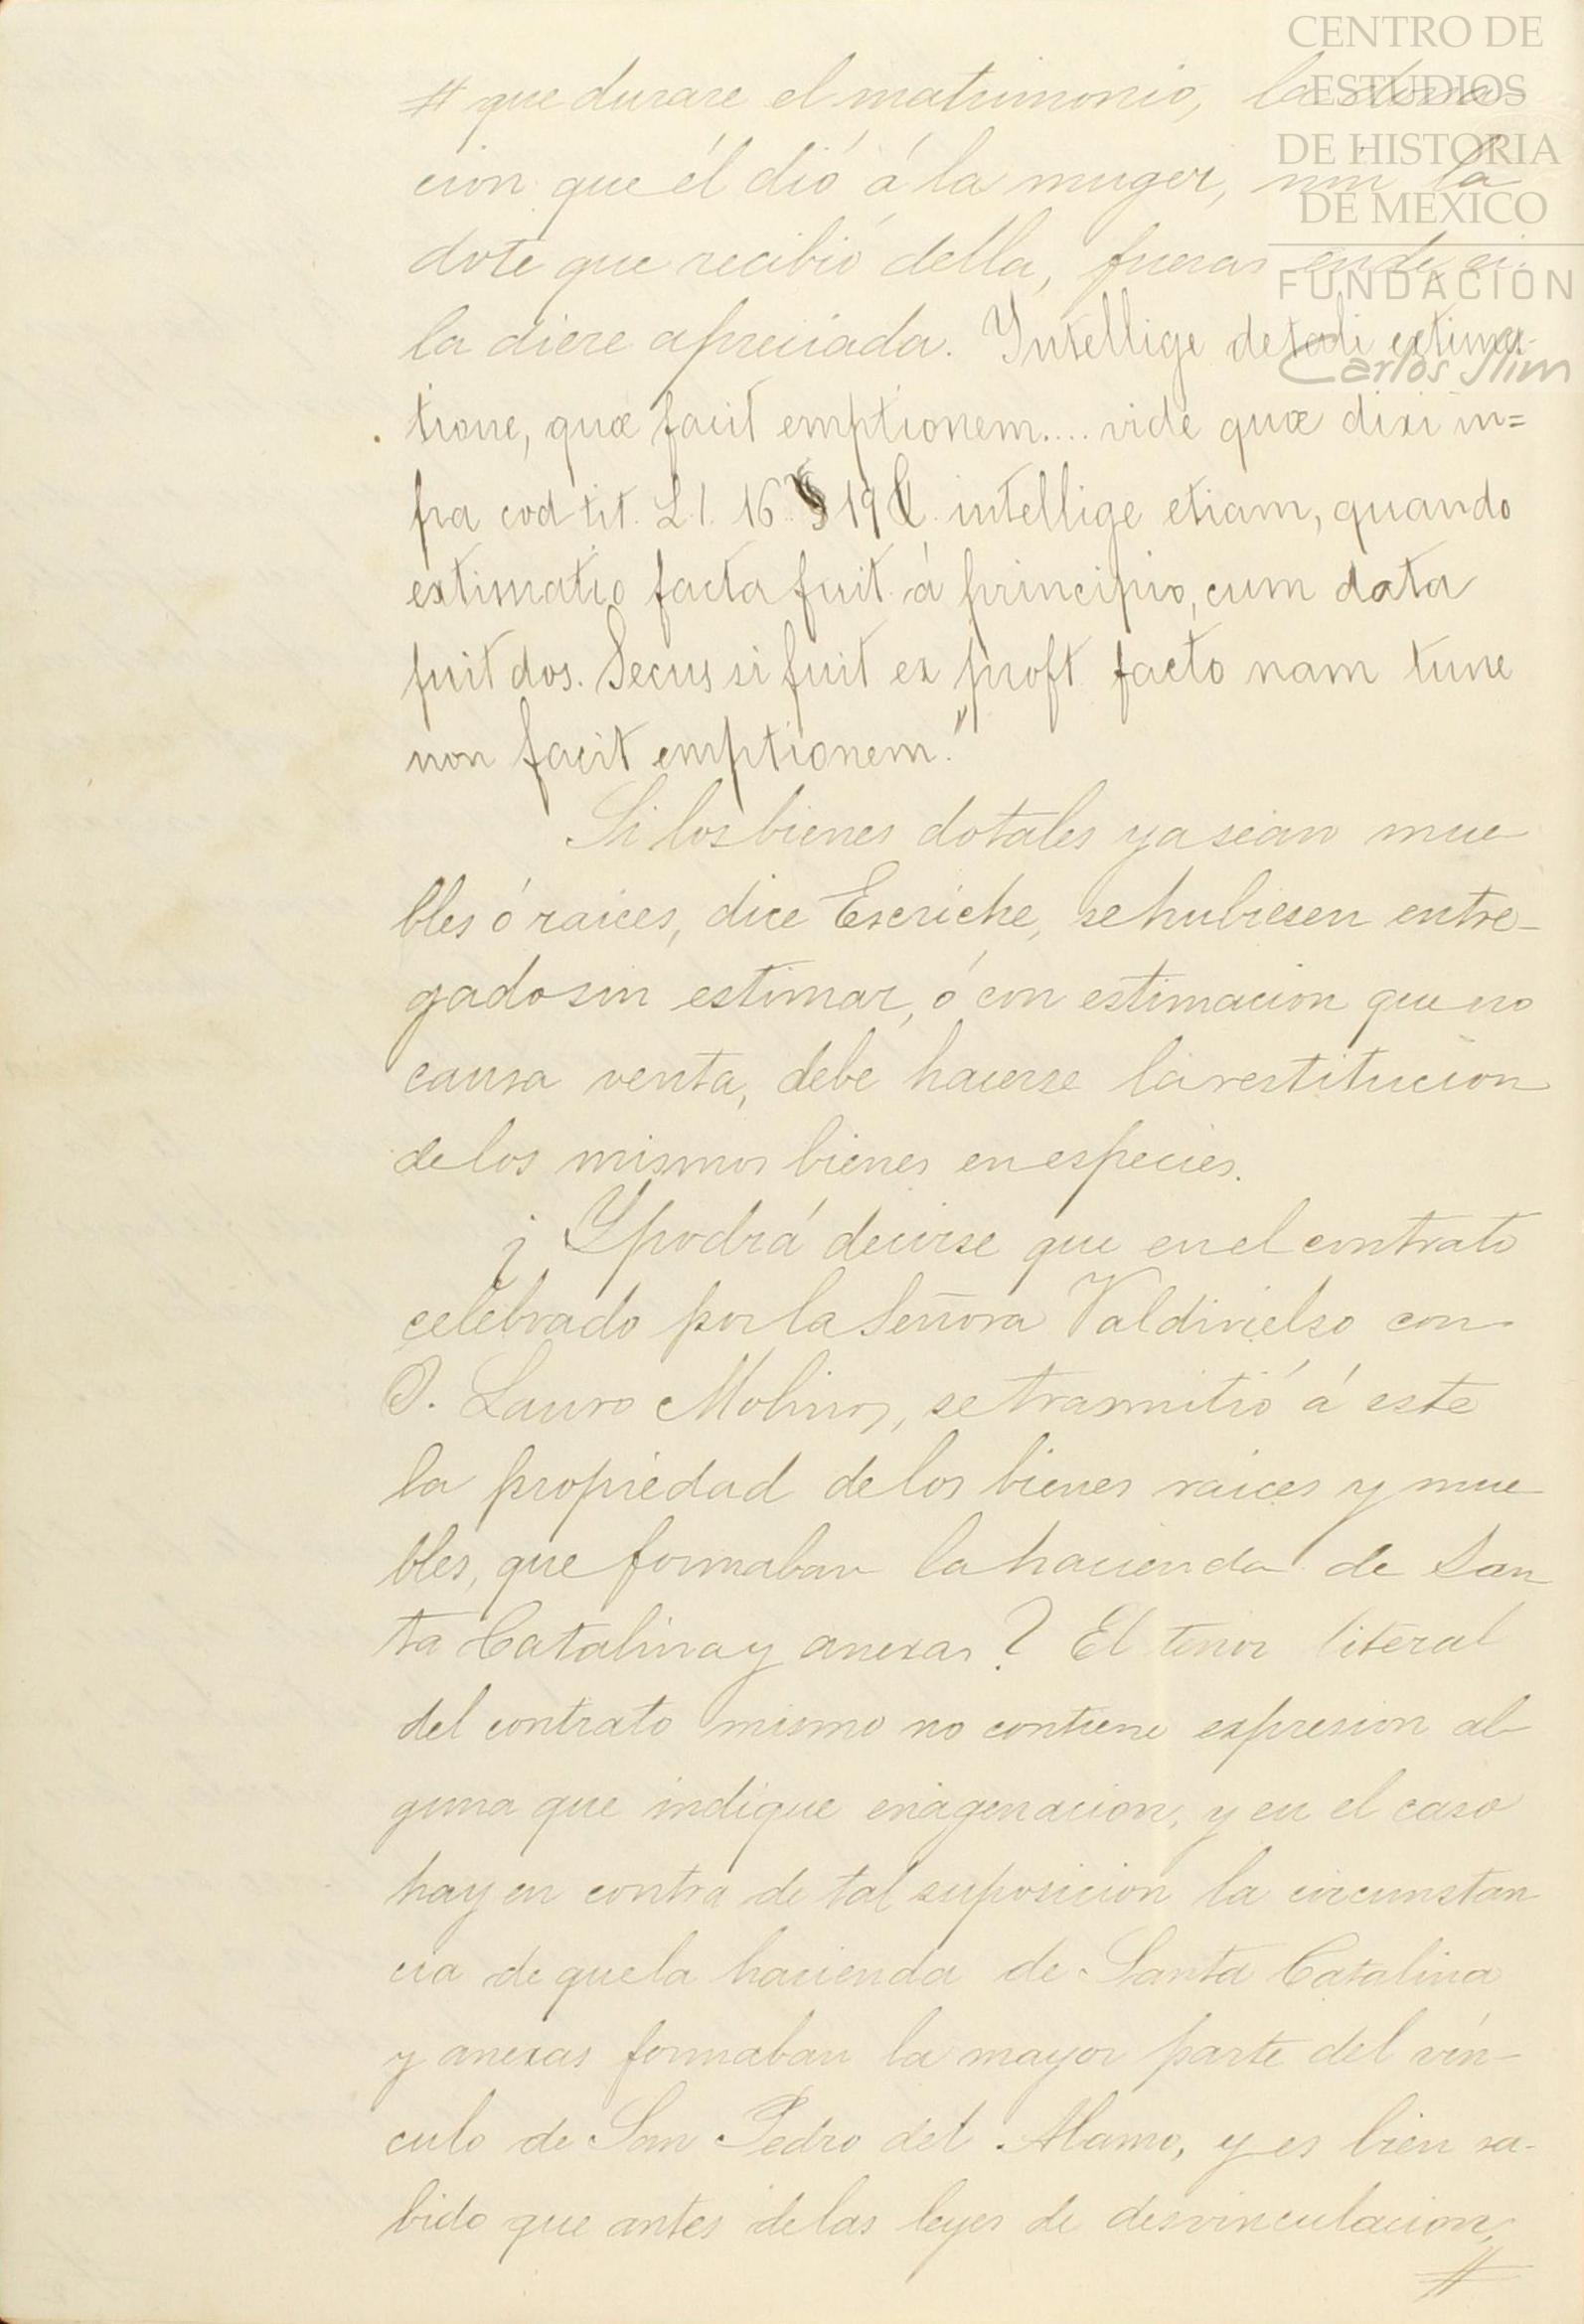 CENTRO DE
ESTUDIOS
DE HISTORIA
DE MEXICO
FUNDACIÓN
Carlos Slim
# que durare el matrimonio, la dona-
cion que él dió á la muger, nin la
dote que recibió della, fueras ende si
la diere apreciada. Intellige detali extima-
tione, quæ facit emptionem.... vide quæ dixi in=
fra eod tit. L. l. 16 19 intellige etiam, quando
extimatio facta fuit á principio, cum data
fuit dos. Secus si fuit ex proft facto nam tunc
non facit emptionem."
Si los bienes dotales ya sean mue
bles ó raices, dice Escriche, se hubiesen entre-
gado sin estimar, ó con estimacion que no
causa venta, debe hacerse la restitucion
de los mismos bienes en especies.
¿Y podrá decirse que en el contrato
celebrado por la Señora Valdivielso con
D. Lauro Molinos, se trasmitió á este
la propiedad de los bienes raices y mue
bles, que formaban la hacienda de San
ta Catalina y anexas? El tenor literal
del contrato mismo no contiene expresion al-
guna que indique enagenacion, y en el caso
hay en contra de tal suposicion la circunstan
cia de que la hacienda de Santa Catalina
y anexas formaban la mayor parte del vin-
culo de San Pedro del Alamo, y es bien sa-
bido que antes de las leyes de desvinculacion,
#